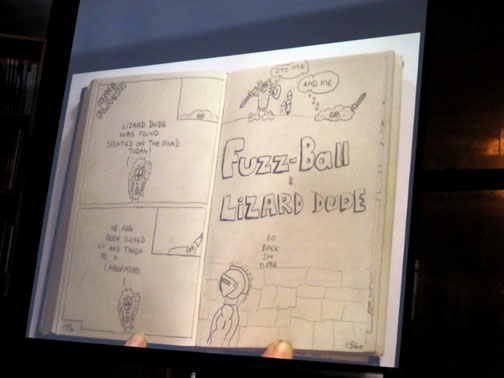 LIZARD DUDE
WAS FOUND
SPLATED ON THE ROAD
TODAY!
HE HAS
BEEN
UP AND TAKEN
TO A
ITS ME
AND ME
FUZZ-BALL
&
LIZARD DUDE
GO
BACK
IN
TIME
156